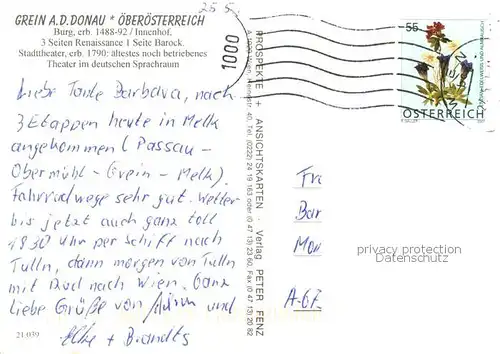 GREIN A.D.DONAU * ÖBERÖSTERREICH
Burg, erb. 1488-92 / Innenhof,
3 Seiten Renaissance 1 Seite Barock.
Stadttheater, erb. 1790: ältestes noch betriebenes
Theater im deutschen Sprachraum
25 5
1000
55
ÖSTERREICH
Liebe Tante Barbara, nach
3 Etappen heute in Melk
angekommen (Passau -
Obermühl - Grein - Melk).
Fahrradwege sehr gut. Wetter
bis jetzt auch ganz toll
1830 Uhr per Schiff nach
Tulln, dann morgen von Tulln
mit Rad nach Wien. Ganz
liebe Grüße von und
Elke + Brandts
21 039
PROSPEKTE + ANSICHTSKARTEN · Verlag PETER FENZ
40, Tel. (0222) 24 19 163 oder (0 47 13) 23 60, Fax (0 47 13) 20 82
Fra
Bar
Mor
A-6
privacy protection
Datenschutz